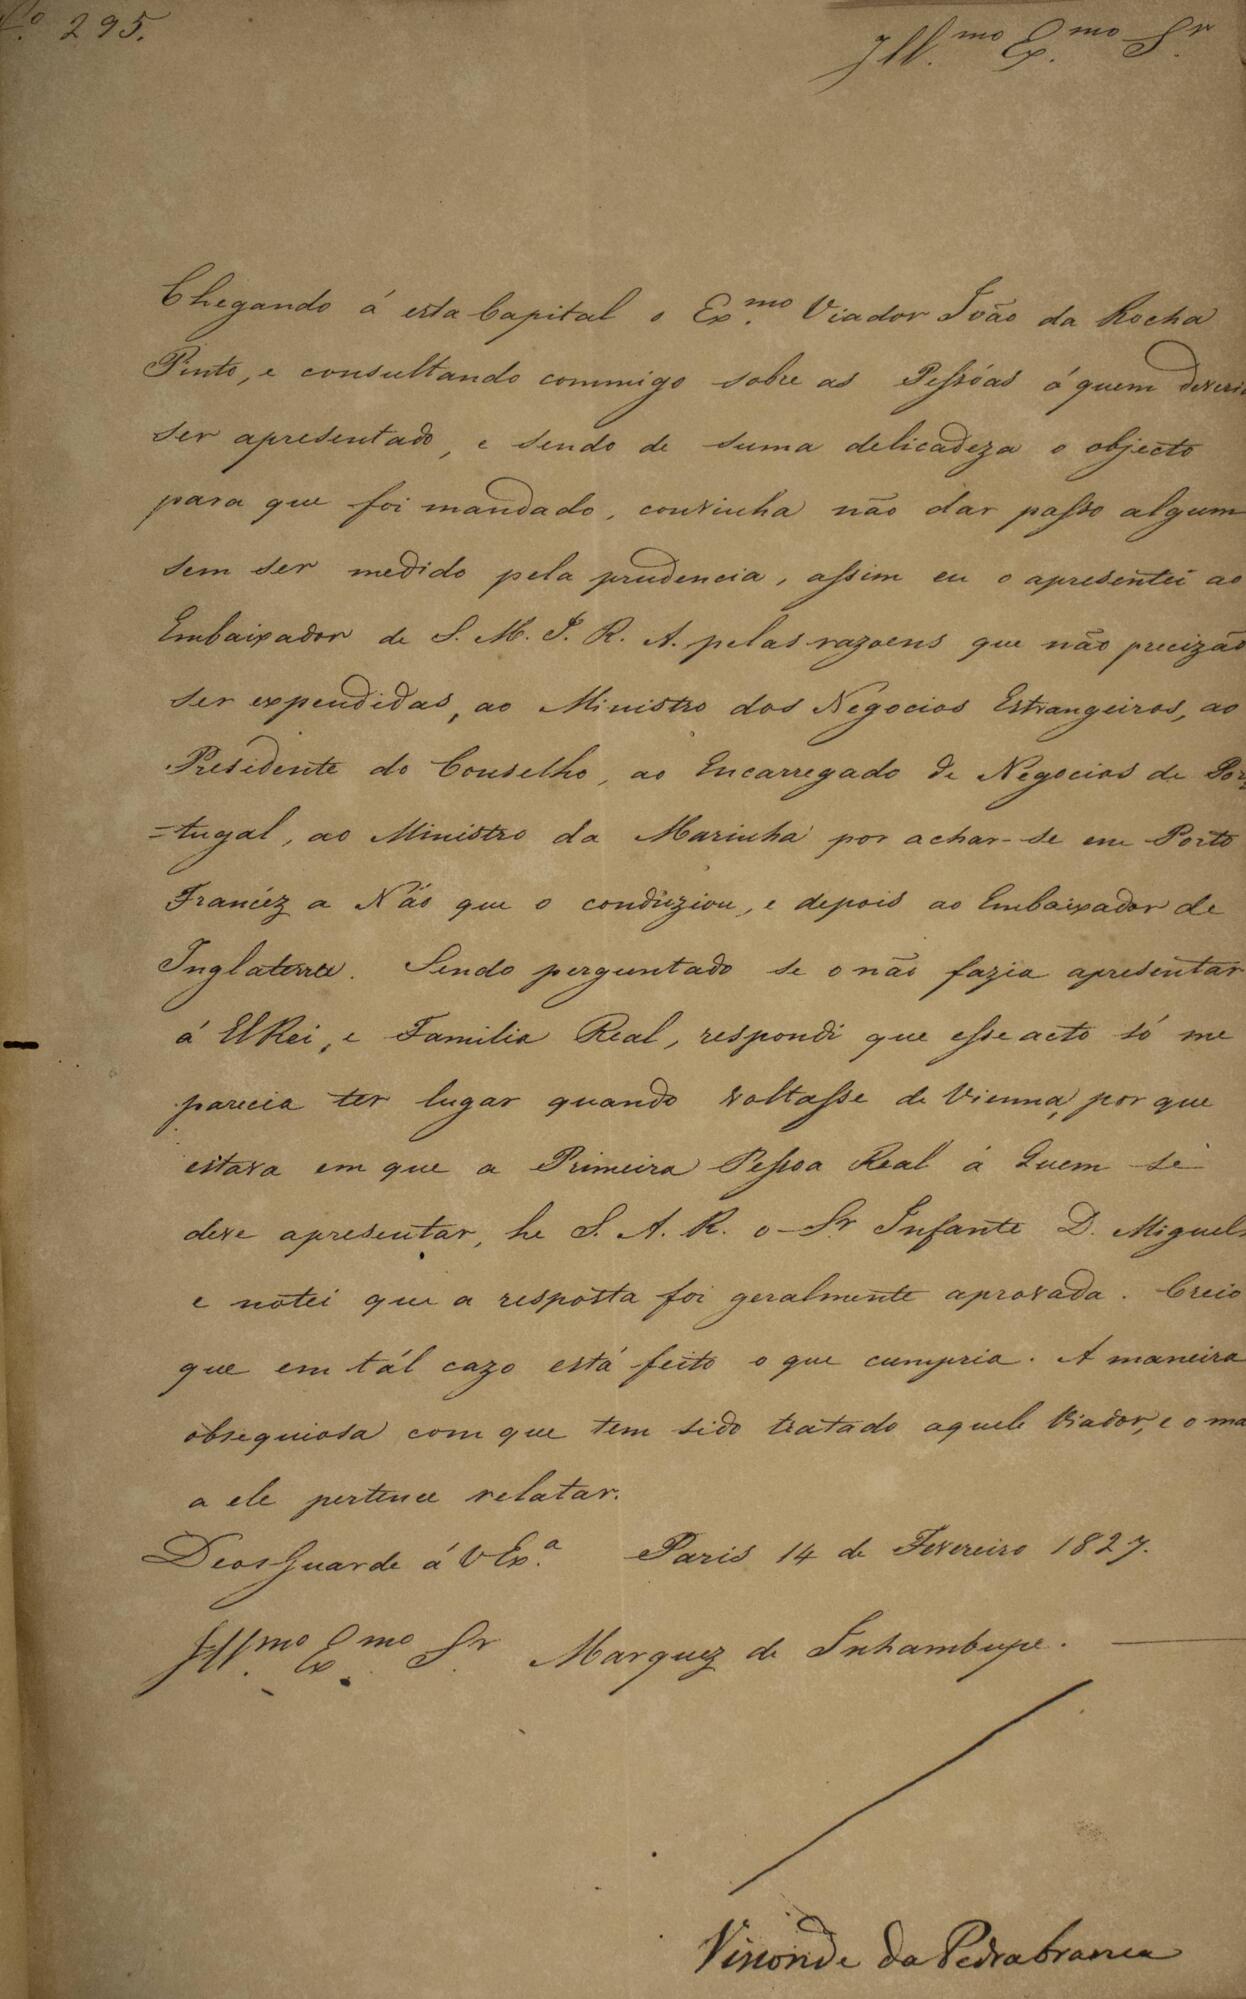 Nº 295.
Ill.mo Ex.mo Sr.
Chegando á esta Capital o Ex.mo Viador João da Rocha
Pinto, e consultando commigo sobre as Pessóas á quem deveria
ser apresentado, e sendo de suma delicadeza o objecto
para que foi mandado, convinha não dar passo algum
sem ser medido pela prudencia, assim eu o apresentei ao
Embaixador de S. M. I. R. A. pelas razoens que não precizão
ser expendidas, ao Ministro dos Negocios Estrangeiros, ao
Presidente do Conselho, ao Encarregado de Negocios de Por=
=tugal, ao Ministro da Marinha por achar-se em Porto
Francéz a Náo que o conduziou, e depois ao Embaixador de
Inglaterra. Sendo perguntado se o não fazia apresentar
á ElRei, e Familia Real, respondi que esse acto só me
parecia ter lugar quando voltasse de Vienna, por que
estava em que a Primeira Pessoa Real á Quem se
deve apresentar, he S. A. R. o Sr Infante D. Miguel,
e notei que a resposta foi geralmente aprovada. Creio
que em tál cazo está feito o que cumpria. A maneira
obsequiosa com que tem sido tratado aquele Viador, e o ma
a ele pertence relatar.
Deos Guarde á V Ex.a Paris 14 de Fevereiro 1827.
Ill.mo Ex.mo Sr. Marquez de Inhambupe.
Visconde da Pedrabranca